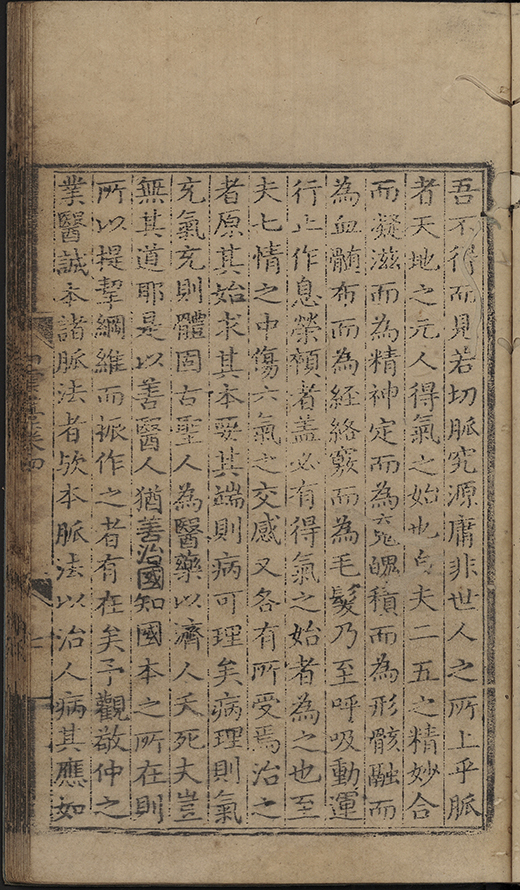 吾不得而見若切脈究源庸非世人之所上乎脈
者天地之元人得氣之始也自夫二五之精妙合
而凝滋而為精神定而為䰟魄積而為形骸融而
為血髓布而為経絡竅而為毛髮乃至呼吸動運
行止作息榮頓者盖必有得氣之始者為之也至
夫七情之中傷六氣之交感又各有所受焉治之
者原其始求其本要其端則病可理矣病理則氣
充氣充則體固古聖人為醫藥以濟人夭死夫豈
無其道耶是以善醫人猶善治國知國本之所在則
所以提挈綱維而振作之者有在矣予觀敬仲之
業醫誠本諸脈法者欤本脈法以治人病其應如
卷四